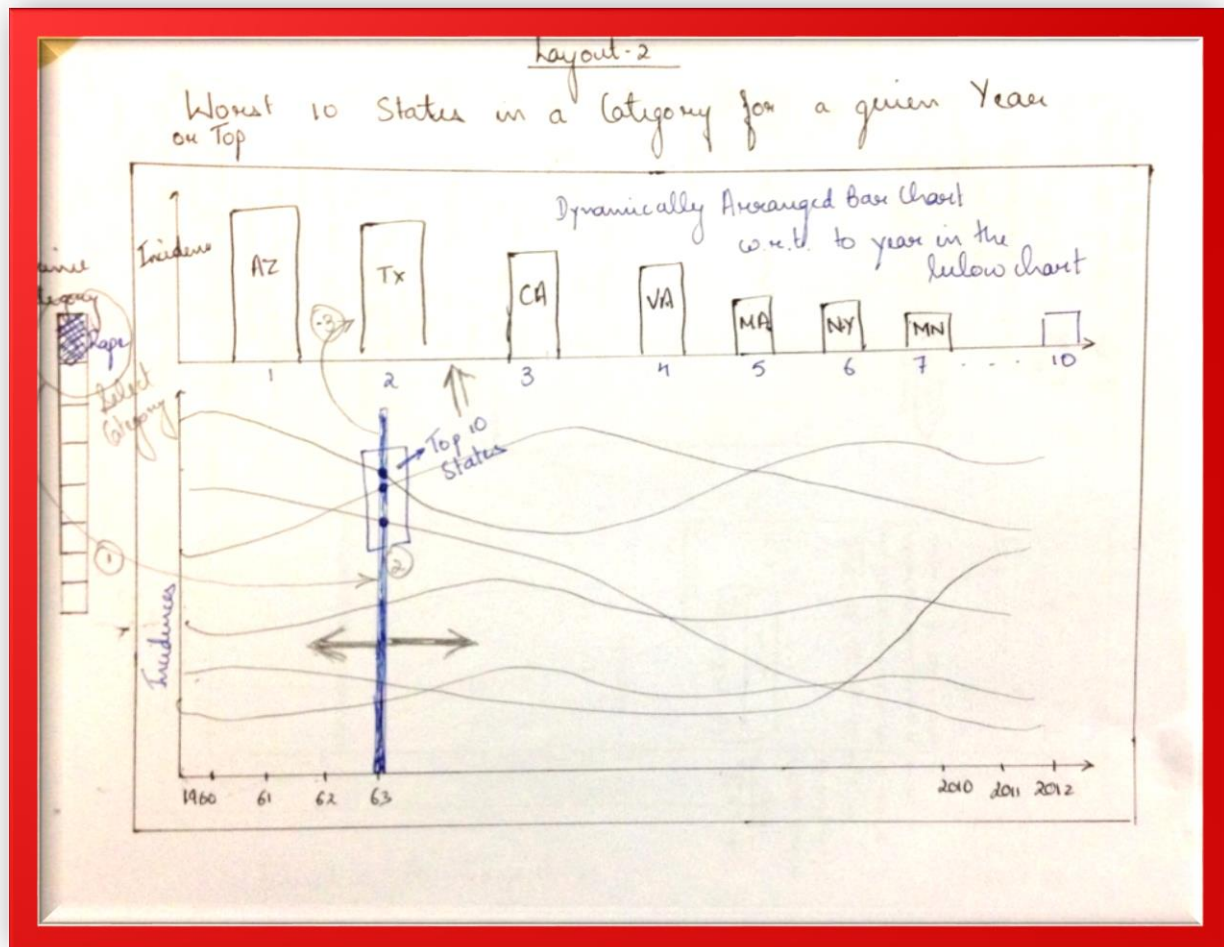 Layout-2
Worst 10 States in a Category for a given Year
or Top
Dynamically Arranged Bar Chart
w.r.t. to year in the
below chart
Incidence
AZ
TX
CA
VA
MA
NY
MN
1 2 3 4 5 6 7 . . . . 10
Rape
Select
Category
-3
Top 10
States
2
Incidences
1960 61 62 63 2010 2011 2012